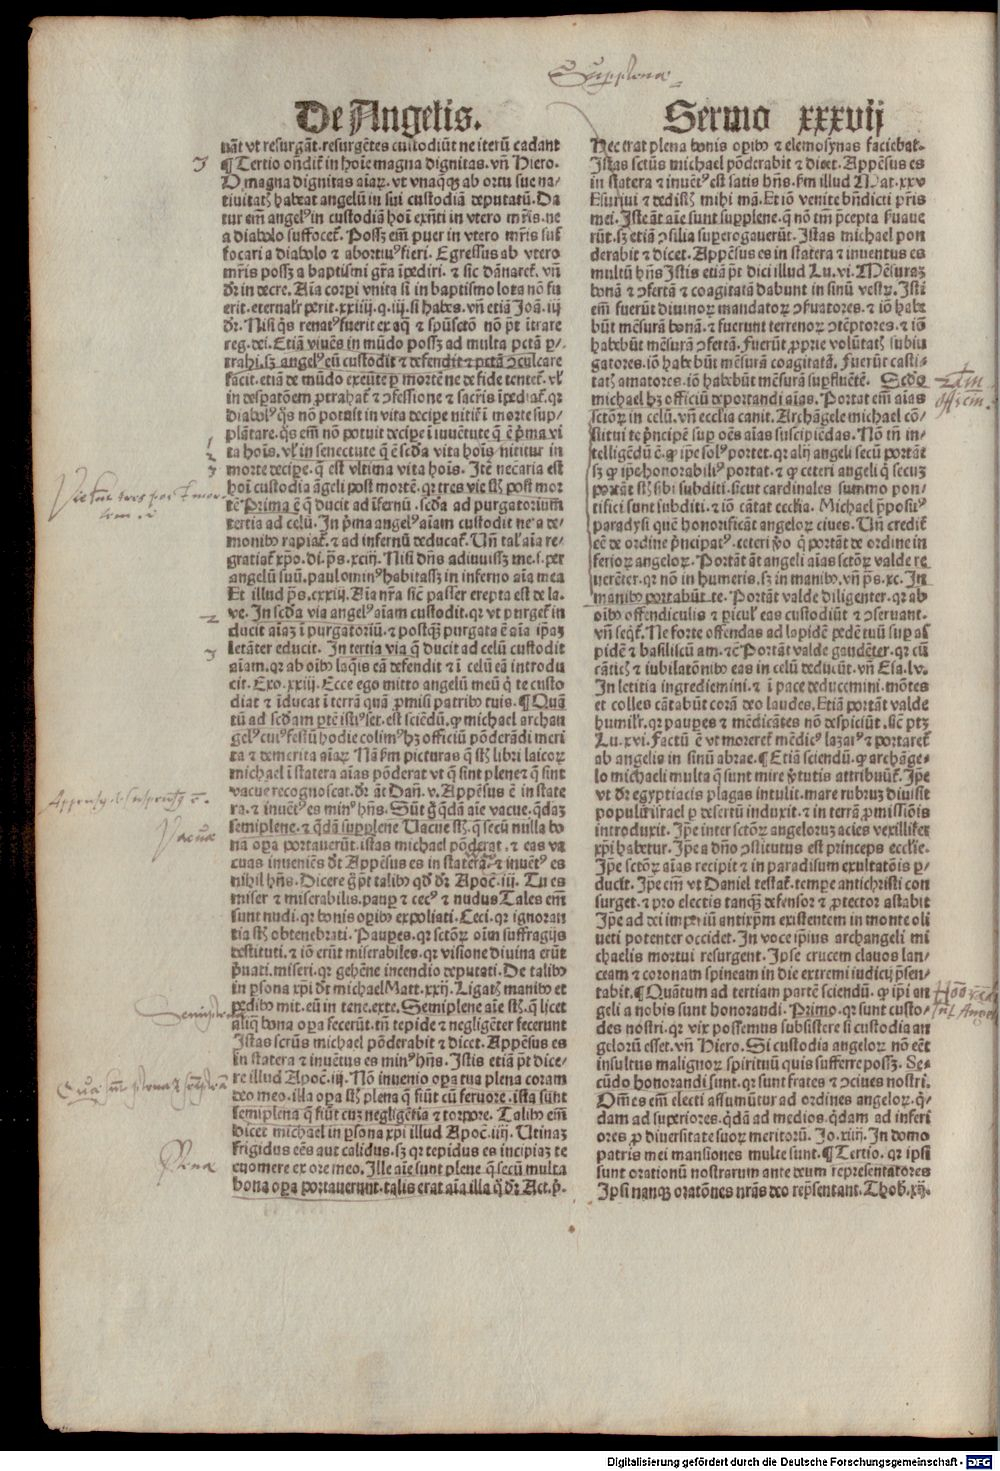 De Angelis.
Sermo xxxvij
Supplena
nāt vt resurgāt. resurgētes custodiūt ne iterū cadant
¶Tertio ondit̄ in hoīe magna dignitas. vn̄ Hiero.
O magna dignitas aīaꝝ. vt vnaqꝫ ab ortu sue na/
tiuitatꝭ habeat angelū in sui custodiā deputatū. Da
tur em̄ angelꝰ in custodiā hoī exn̄ti in vtero mr̄is. ne
a diabolo suffocet̄. Possꝫ em̄ puer in vtero mr̄is suf
focari a diabolo ⁊ abortiuꝰ fieri. Egressus ab vtero
mr̄is possꝫ a baptismi gr̄a īpediri. ⁊ sic dānaret̄. vn̄
dr̄ in decre. Aīa corpi vnita si in baptismo lota nō fu
erit. eternalr̄ perit. xxiiij. q. iij. si habes. vn̄ etiā Joā. iij
dr̄. Nisi q̇s renatꝰ fuerit ex aq̄ ⁊ spūsctō nō pt̄ ītrare
reg. dei. Etiā viuēs in mūdo possꝫ ad multa pctā ꝑ/
trahi. sꝫ angelꝰ eū custodit ⁊ defendit ⁊ pctā ꝯculcare
facit. etiā de mūdo exeūte ꝑ mortē ne de fide tentet̄. vl̓
in desꝑatōem ꝓtrahat̄ ⁊ ꝯfessione ⁊ sacr̄is īpediat̄. qr
diabolꝰ q̇s nō potuit in vita decipe nitit̄ ī morte sup/
plātare. q̇s em̄ nō potuit decipe ī iuuētute q̄ ē p̄ma vi
ta hoīs. vl̓ in senectute q̄ ē scd̄a vita hoīs. nititur in
morte decipe. q̄ est vltima vita hoīs. Itē necaria est
hoī custodia āgeli post mortē. qr tres vie st̄ post mor
tē Prima ē q̄ ducit ad īfernū. scd̄a ad purgatorium
tertia ad celū. In p̄ma angelꝰ aīam custodit ne a de/
monibꝰ rapiat̄. ⁊ ad infernū deducat̄. Vn̄ tal̓ aīa re/
gratiat̄ xp̄o. di. ps. xciij. Nisi dn̄s adiuuissꝫ me. s. per
angelū suū. paulominꝰ habitassꝫ in inferno aīa mea
Et illud ps. cxxiij. Aīa nr̄a sic̄ passer erepta est de la.
ve. In scd̄a via angelꝰ aīam custodit. qr vt purget̄ in
ducit aīaꝫ ī purgatoriū. ⁊ postqꝫ purgata ē aīa ip̄aꝫ
letāter educit. In tertia via q̄ ducit ad celū custodit
aīam. qr ab oībꝰ laq̇is eā defendit ⁊ ī celū eā introdu
cit. Exo. xxiij. Ecce ego mitto angelū meū q̇ te custo
diat ⁊ īducat ī terrā quā ꝓmisi patribꝰ tuis. ¶Quā
tū ad scd̄am ꝑtē istiꝰ set. est sciēdū. ꝙ michael archan
gelꝰ cuiꝰ festū hodie colimꝰ hꝫ officiū pōderādi meri
ta ⁊ demerita aīaꝝ Nā fm̄ picturas q̄ st̄ libri laicoꝝ
michael ī statera aīas pōderat vt q̄ sint plene ⁊ q̄ sint
vacue recognoscat. dr̄ āt Dan̄. v. Appēsus ē in state
ra. ⁊ inuētꝰ es minꝰ hn̄s. Sūt g̊ q̄dā aīe vacue. q̄daꝫ
semiplene. ⁊ q̄dā supplene Uacue st̄. q̄ secū nulla bo
na oꝑa portauerūt. istas michael pōderat. ⁊ eas va
cuas inueniēs dt̄ Appēsus es in statera ⁊ inuētꝰ es
nihil hn̄s. Dicere g̊ pt̄ talibꝰ qd̄ dr̄ Apoc̄. iij. Tu es
miser ⁊ miserabilis. pauꝑ ⁊ cecꝰ ⁊ nudus Tales em̄
sunt nudi. qr bonis opibꝰ expoliati. Ceci. qr ignoran
tia st̄ obtenebrati. Pauꝑes. qr sctōꝝ oīm suffragijs
destituti. ⁊ iō erūt miserabiles. qr visione diuina erūt
p̄uati. miseri. qr gehēne incendio deputati. De talibꝰ
in ꝑsona xp̄i dt̄ michael Matt. xxij. Ligatꝭ manibꝰ et
pedibꝰ mit. eū in tene. exte. Semiplene aīe st̄. q̄ licet
aliq̄ bona oꝑa fecerūt. tn̄ tepide ⁊ negligēter fecerunt
Istas scrūs michael pōderabit ⁊ dicet. Appēsus es
in statera ⁊ inuētus es minꝰ hn̄s. Istis etiā pt̄ dice/
re illud Apoc̄. iij. Nō inuenio oꝑa tua plena coram
deo meo. illa oꝑa st̄ plena q̄ fiūt cū feruore. ista sunt
semiplena q̄ fiūt cuꝫ negligētia ⁊ torpore. Talibꝰ em̄
dicet michael in ꝑsona xpi illud Apoc̄. iij. Utinaꝫ
frigidus eēs aut calidus. sꝫ qr tepidus es incipiaꝫ te
euomere ex ore meo. Ille aīe sunt plene. q̄ secū multa
bona oꝑa portauerunt. talis erat aīa illa q̄ dr̄ Act. p̄.
Hec erat plena bonis opibꝰ ⁊ elemosynas faciebat.
Istas sctūs michael pōderabit ⁊ dicet. Appēsus es
in statera ⁊ inuētꝰ est satis hn̄s. fm̄ illud Mat. xxv
Esuriui ⁊ dedistꝭ mihi mā. Et iō venite bn̄dicti pr̄is
mei. Iste āt aīe sunt supplene. q̄ nō tm̄ p̄cepta ẜuaue
rūt. sꝫ etiā ꝯsilia superogauerūt. Istas michael pon
derabit ⁊ dicet. Appēsus es in statera ⁊ inuentus es
multū hn̄s Istis etiā pt̄ dici illud Lu. vi. Mēsuraꝫ
bonā ⁊ ꝯfertā ⁊ coagitatā dabunt in sinū vestꝝ. Isti
em̄ fuerūt diuinoꝝ mandatoꝝ ꝯẜuatores. ⁊ iō habe
būt mēsurā bonā. ⁊ fuerunt terrenoꝝ ꝯtēptores. ⁊ iō
habebūt mēsurā ꝯfertā. Fuerūt ꝓprie volūtatꝭ subiu
gatores. iō habebūt mēsurā coagitatā. Fuerūt casti-
tatꝭ amatores. iō habebūt mēsurā supfluētē. Scd̄o
michael hꝫ officiū deportandi aīas. Portat em̄ aīas
sctōꝝ in celū. vn̄ ecclīa canit. Archāgele michael cō/
stitui te p̄ncipē sup oēs aīas suscipiēdas. Nō tn̄ in/
telligēdū ē. ꝙ ip̄e solꝰ portet. qr alij angeli secū portāt
sꝫ ꝙ ip̄e honorabiliꝰ portat. ⁊ ꝙ ceteri angeli q̇ secuꝫ
portāt st̄ sibi subditi. sicut cardinales summo pon/
tifici sunt subditi. ⁊ iō cātat ecclīa. Michael p̄positꝰ
paradysi quē honorificāt angeloꝝ ciues. Vn̄ credit̄
eē de ordine p̄ncipatꝰ. ceteri ꝟo q̇ portāt de ordine in
ferioꝝ angeloꝝ. Portāt āt angeli aīas sctōꝝ valde re
uerēter. qr nō in humeris. sꝫ in manibꝰ. vn̄ ps. xc. In
manibꝰ portabūt te. Portāt valde diligenter. qr ab
oībꝰ offendiculis ⁊ ꝑiculꝭ eas custodiūt ⁊ ꝯseruant.
vn̄ seqt̄. Ne forte offendas ad lapidē pedē tuū sup as
pidē ⁊ basiliscū am. ⁊c̄ Portāt valde gaudēter. qr cū
cāticꝭ ⁊ iubilatōnibꝰ eas in celū deducūt. vn̄ Esa. lv.
In letitia ingrediemini. ⁊ ī pace deducemini. mōtes
et colles cātabūt corā deo laudes. Etiā portāt valde
humilr̄. qr pauꝑes ⁊ mēdicātes nō despiciūt. sic̄ ptꝫ
Lu. xvi. Factū ē vt moreret̄ mēdicꝰ lazarꝰ ⁊ portaret̄
ab angelis in sinū abrae. ¶Etiā sciendū. ꝙ archāge-
lo michaeli multa q̄ sunt mire ꝟtutis attribuūt̄. Ip̄e
vt dr̄ egyptiacis plagas intulit. mare rubruꝫ diuisit
populū israel ꝑ desertū induxit. ⁊ in terrā ꝓmissiōis
introduxit. Ip̄e inter sctōꝝ angeloruꝫ acies vexillifer
xp̄i habetur. Ip̄e a dn̄o ꝯstitutus est princeps ecclīe.
Ip̄e sctōꝝ aīas recipit ⁊ in paradisum exultatōnis ꝑ/
ducit. Ip̄e em̄ vt Daniel testat̄. tempe antichristi con
surget. ⁊ pro electis tanqꝫ defensor ⁊ ꝓtector astabit
Ip̄e ad dei imperiū antixp̄m existentem in monte oli
ueti potenter occidet. In voce ip̄ius archangeli mi
chaelis mortui resurgent. Ipse crucem clauos lan/
ceam ⁊ coronam spineam in die extremi iudicij p̄sen/
tabit. ¶Quātum ad tertiam partē sciendū. ꝙ ip̄i an
geli a nobis sunt honorandi. Primo. qr sunt custo/
des nostri. qr vix possemus subsistere si custodia an
gelorū esset. vn̄ Hiero. Si custodia angeloꝝ nō eēt
insultus malignoꝝ spirituū quis sufferre possꝫ. Se-
cūdo honorandi sunt. qr sunt fratres ⁊ ꝯciues nostri.
Om̄es em̄ electi assumūtur ad ordines angeloꝝ. q̇/
dam ad superiores. q̇dā ad medios. q̇dam ad inferi
ores ꝓ diuersitate suoꝝ meritorū. Jo. xiiij. In domo
patris mei mansiones multe sunt. ¶Tertio. qr ipsi
sunt orationū nostrarum ante deum representatores
Ipsi nanqꝫ oratōnes nr̄as deo rep̄sentant. Thob. xij.
3
1
2
3
2
3
Vacuæ
Semiplenæ
Plena
2dm
officiū.
Digitalisierung gefördert durch die Deutsche Forschungsgemeinschaft - DFG